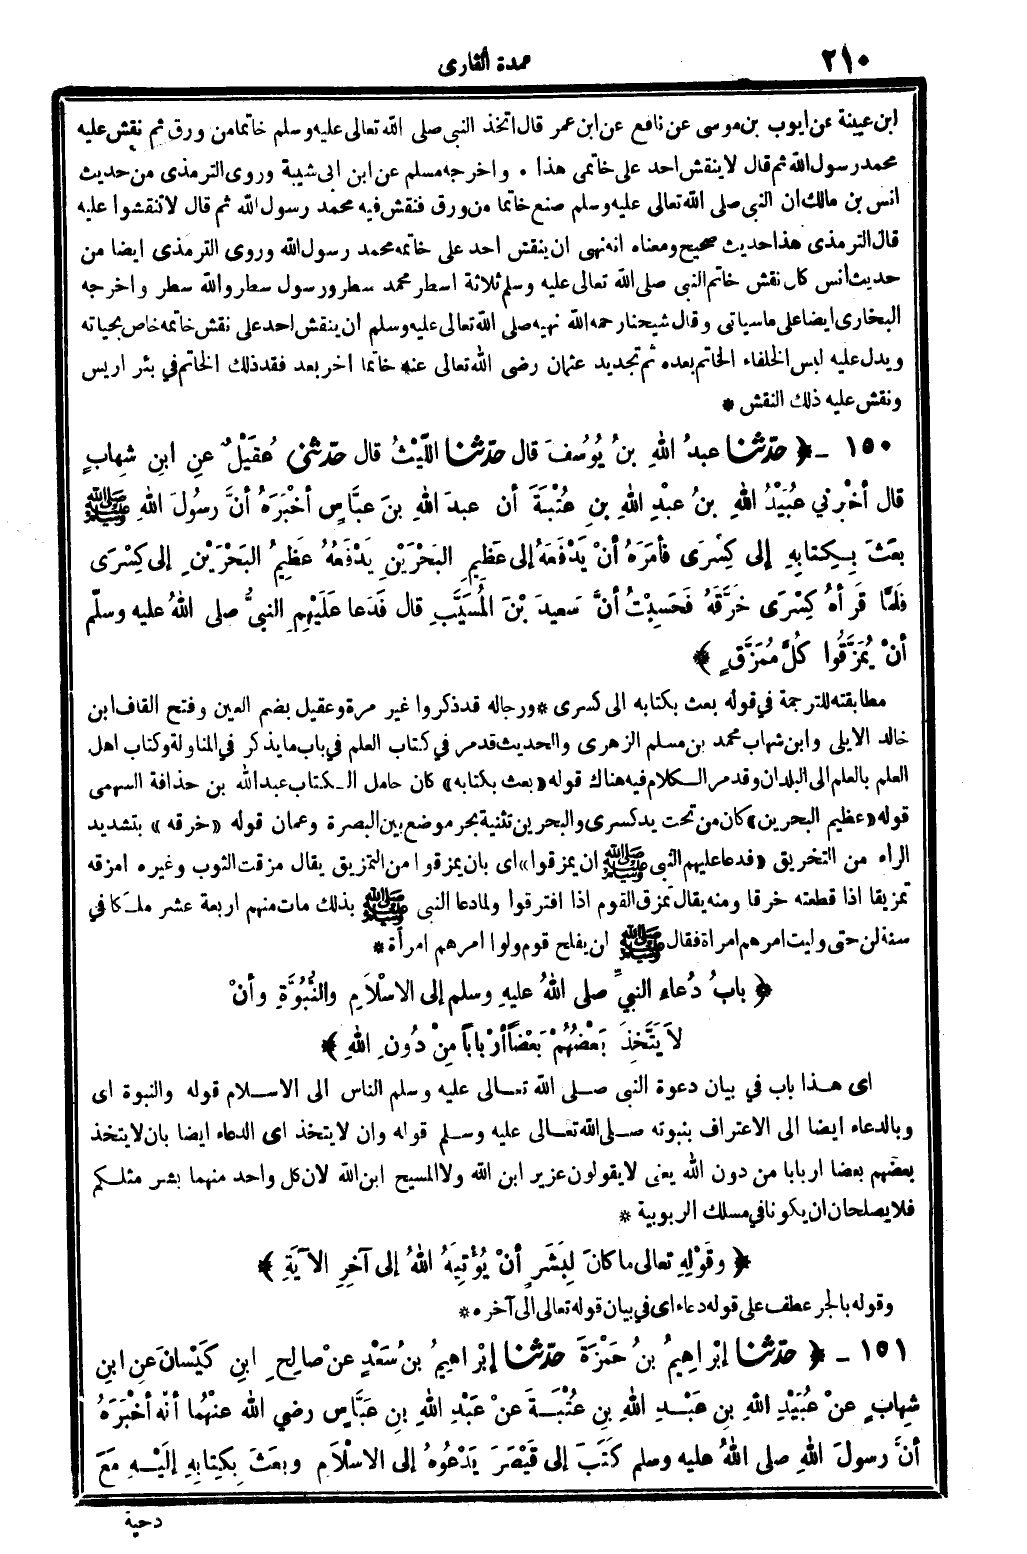 ٢١٠
عمدة القارى
ابن عيينة عن ايوب بن موسى عن نافع عن ابن عمر قال اتخذ النبى صلى الله تعالى عليه وسلم خاتما من ورق ثم نقش عليه
محمد رسول الله ثم قال لا ينقش احد على خاتمى هذا ٠ واخرجه مسلم عن ابن ابى شيبة وروى الترمذى من حديث
انس بن مالك ان النبى صلى الله تعالى عليه وسلم صنع خاتما من ورق فنقش فيه محمد رسول الله ثم قال لا تنقشوا عليه
قال الترمذى هذا حديث صحيح ومعناه انه نهى ان ينقش احد على خاتمه محمد رسول الله وروى الترمذى ايضا من
حديث أنس كان نقش خاتم النبى صلى الله تعالى عليه وسلم ثلاثة اسطر محمد سطر ورسول سطر والله سطر واخرجه
البخارى ايضا على ما سياتى وقال شيخنا رحمه الله نهيه صلى الله تعالى عليه وسلم ان ينقش احد على نقش خاتمه خاص بحياته
ويدل عليه لبس الخلفاء الخاتم بعده ثم تجديد عثمان رضى الله تعالى عنه خاتما اخر بعد فقد ذلك الخاتم في بئر اريس
ونقش عليه ذلك النقش *
١٥٠ ـ ﴿ حدّثنا عبدُ اللهِ بنُ يُوسُفَ قال حدّثنا اللّيْثُ قال حدّثنى عُقَيْلٌ عنِ ابنِ شِهابٍ
قال أخْبرني عُبَيْدُ اللهِ بنُ عبْدِ اللهِ بنِ عُتْبَةَ أن عبدَ اللهِ بنَ عبَّاسٍ أخْبَرَهُ أنَّ رسُولَ اللهِ ﷺ
بعَثَ بِكِتابِهِ إلى كِسْرَى فأمَرَهُ أنْ يَدْفَعَهُ إلى عَظِيمِ البَحْرَيْنِ يَدْفَعُهُ عَظِيمُ البَحْرَيْنِ إلى كِسْرَى
فَلمَّا قَرأهُ كِسْرَى خَرَّقَهُ فَحَسِبْتُ أنَّ سَعيدَ بْنَ المُسَيَّبِ قال فَدَعا عَلَيْهِمِ النبيُّ صلى اللهُ عليه وسلّم
أنْ يُمَزَّقُوا كُلَّ مُمَزَّقٍ ﴾
مطابقته للترجمة في قوله بعث بكتابه الى كسرى * ورجاله قد ذكروا غير مرة وعقيل بضم العين وفتح القاف ابن
خالد الايلى وابن شهاب محمد بن مسلم الزهرى والحديث قد مر في كتاب العلم في باب ما يذكر في المناولة وكتاب اهل
العلم بالعلم الى البلدان وقد مر الـكلام فيه هناك قوله «بعث بكتابه» كان حامل الـكتاب عبد الله بن حذافة السهمى
قوله «عظيم البحرين» كان من تحت يد كسرى والبحرين تثنية بحر موضع بين البصرة وعمان قوله «خرقه» بتشديد
الراء من التخريق «فدعا عليهم النبى ﷺ ان يمزقوا» اى بان يمزقوا من التمزيق يقال مزقت الثوب وغيره امزقه
تمزيقا اذا قطعته خرقا ومنه يقال تمزق القوم اذا افترقوا ولما دعا النبى ﷺ بذلك مات منهم اربعة عشر ملـكا في
سنة لن حتى وليت امرهم امراة فقال ﷺ لن يفلح قوم ولوا امرهم امرأة *
﴿ بابُ دُعاءِ النبيِّ صلى اللهُ عليهِ وسلم إلى الاسْلاَمِ والنُّبُوَّةِ وأنْ
لاَ يَتَّخِذَ بَعْضُهُمْ بَعْضًا أرْبابًا مِنْ دُونِ اللهِ ﴾
اى هـذا باب في بيان دعوة النبى صـلى الله تعـالى عليه وسلم الناس الى الاسـلام قوله والنبوة اى
وبالدعاء ايضا الى الاعتراف بنبوته صـلى الله تعـالى عليه وسـلم قوله وان لا يتخذ اى الدعاء ايضا بان لا يتخذ
بعضهم بعضا اربابا من دون الله يعنى لا يقولون عزير ابن الله ولا المسيح ابن الله لان كل واحد منهما بشر مثلـكم
فلا يصلحان ان يكونا في مسلك الربوبية *
﴿ وقَوْلِهِ تعالى ما كانَ لِبَشَرٍ أنْ يُؤْتِيَهُ اللهُ إلى آخِرِ الآيَةِ ﴾
وقوله بالجر عطف على قوله دعاء اى في بيان قوله تعالى الى آخره *
١٥١ ـ ﴿ حدّثنا إبْراهِيمُ بنُ حَمْزَةَ حدّثنا إبْراهِيمُ بنُ سَعْدٍ عنْ صالِحِ ابنِ كَيْسانَ عنِ ابنِ
شِهابٍ عنْ عُبَيْدِ اللهِ بنِ عَبْـدِ اللهِ بنِ عُتْبَـةَ عنْ عَبْدِ اللهِ بنِ عَبَّاسٍ رضي الله عنْهُما أنّه أخْبَرَهُ
أنَّ رسولَ اللهِ صلى اللهُ عليه وسلم كَتَبَ إلى قَيْصَرَ يَدْعُوهُ إلى الاسْلاَمِ وبعَثَ بِكِتابِهِ إلَيْـهِ مَعَ
دحية